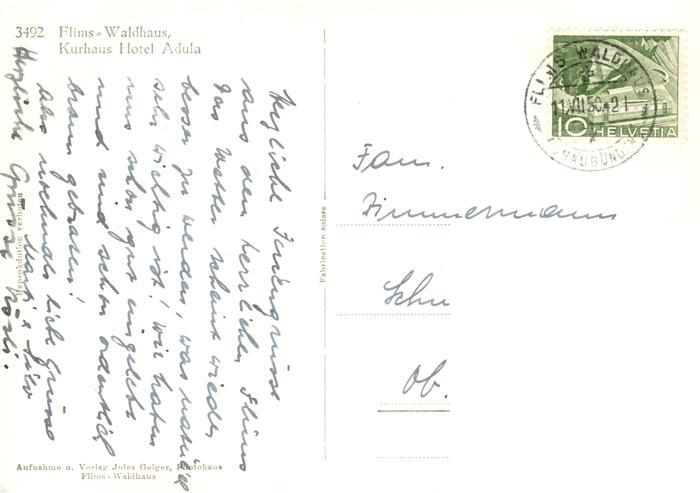 3492 Flims-Waldhaus,
Kurhaus Hotel Adula
Herzliche Feriengrüsse
aus dem herrlichen Flims
Das Wetter scheint wieder
besser zu werden, was natürlich
sehr wichtig ist! Wir haben
uns schon gut eingelebt
und sind schon ordentlich
braun gebraten!
Also nochmals liebe Grüsse
Herzliche Grüsse
Reproduktion verboten
Aufnahme u. Verlag Jules Geiger, Photohaus
Flims-Waldhaus
Fabrication suisse
FLIMS WALDHAUS
11.VII.50.-21
(GRAUBÜNDEN)
10 HELVETIA
Fam.
Zimmermann
Schu
Ob.